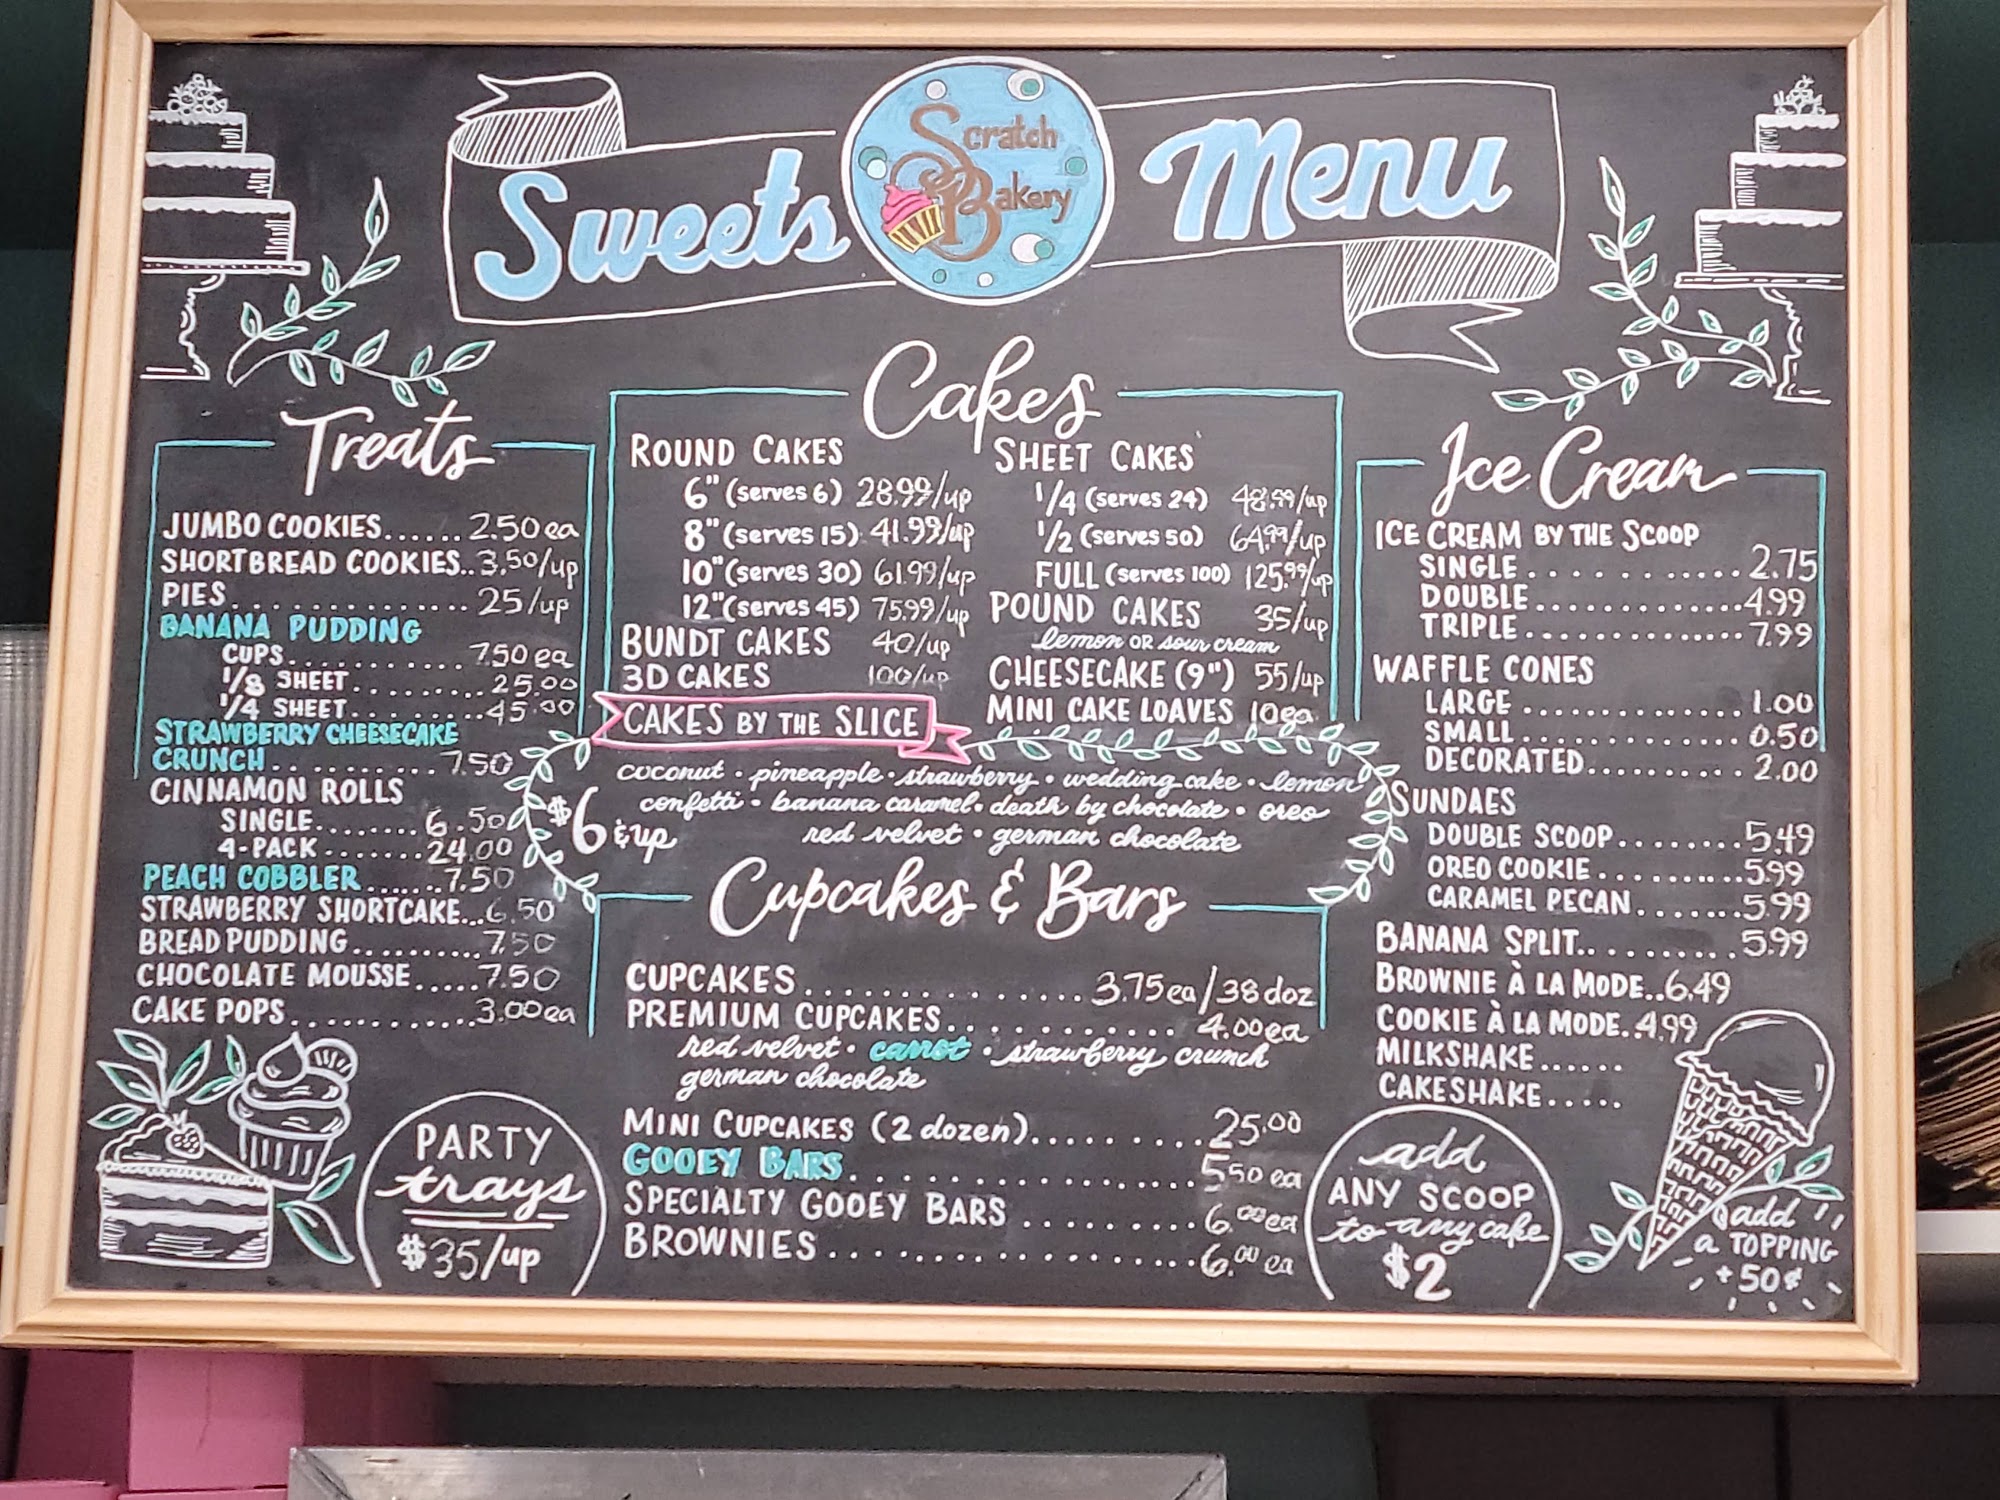 Sweets Scratch Bakery Menu
Treats
JUMBO COOKIES...... 2.50 ea
SHORTBREAD COOKIES.. 3.50/up
PIES.............. 25/up
BANANA PUDDING
CUPS............ 7.50 ea
1/8 SHEET......... 25.00
1/4 SHEET......... 45.00
STRAWBERRY CHEESECAKE
CRUNCH........... 7.50
CINNAMON ROLLS
SINGLE........ 6.50
4-PACK ....... 24.00
PEACH COBBLER...... 7.50
STRAWBERRY SHORTCAKE... 6.50
BREAD PUDDING.......... 7.50
CHOCOLATE MOUSSE..... 7.50
CAKE POPS............. 3.00 ea
PARTY
trays
$35/up
Cakes
ROUND CAKES
6" (serves 6) 28.99/up
8" (serves 15) 41.99/up
10" (serves 30) 61.99/up
12" (serves 45) 75.99/up
BUNDT CAKES 40/up
3D CAKES 100/up
SHEET CAKES
1/4 (serves 24) 48.99/up
1/2 (serves 50) 64.99/up
FULL (serves 100) 125.99/up
POUND CAKES 35/up
lemon OR sour cream
CHEESECAKE (9") 55/up
MINI CAKE LOAVES 10 ea
CAKES BY THE SLICE
$6 & up
coconut • pineapple • strawberry • wedding cake • lemon
confetti • banana caramel • death by chocolate • oreo
red velvet • german chocolate
Cupcakes & Bars
CUPCAKES................ 3.75 ea/38 doz
PREMIUM CUPCAKES............ 4.00 ea
red velvet • carrot • strawberry crunch
german chocolate
MINI CUPCAKES (2 dozen).......... 25.00
GOOEY BARS................. 5.50 ea
SPECIALTY GOOEY BARS ......... 6.00 ea
BROWNIES.................. 6.00 ea
Ice Cream
ICE CREAM BY THE SCOOP
SINGLE............ 2.75
DOUBLE............. 4.99
TRIPLE............. 7.99
WAFFLE CONES
LARGE .............. 1.00
SMALL.............. 0.50
DECORATED.......... 2.00
SUNDAES
DOUBLE SCOOP........ 5.49
OREO COOKIE.......... 5.99
CARAMEL PECAN....... 5.99
BANANA SPLIT......... 5.99
BROWNIE À LA MODE.. 6.49
COOKIE À LA MODE.. 4.99
MILKSHAKE......
CAKESHAKE.....
add
ANY SCOOP
to any cake
$2
add
a TOPPING
+50¢